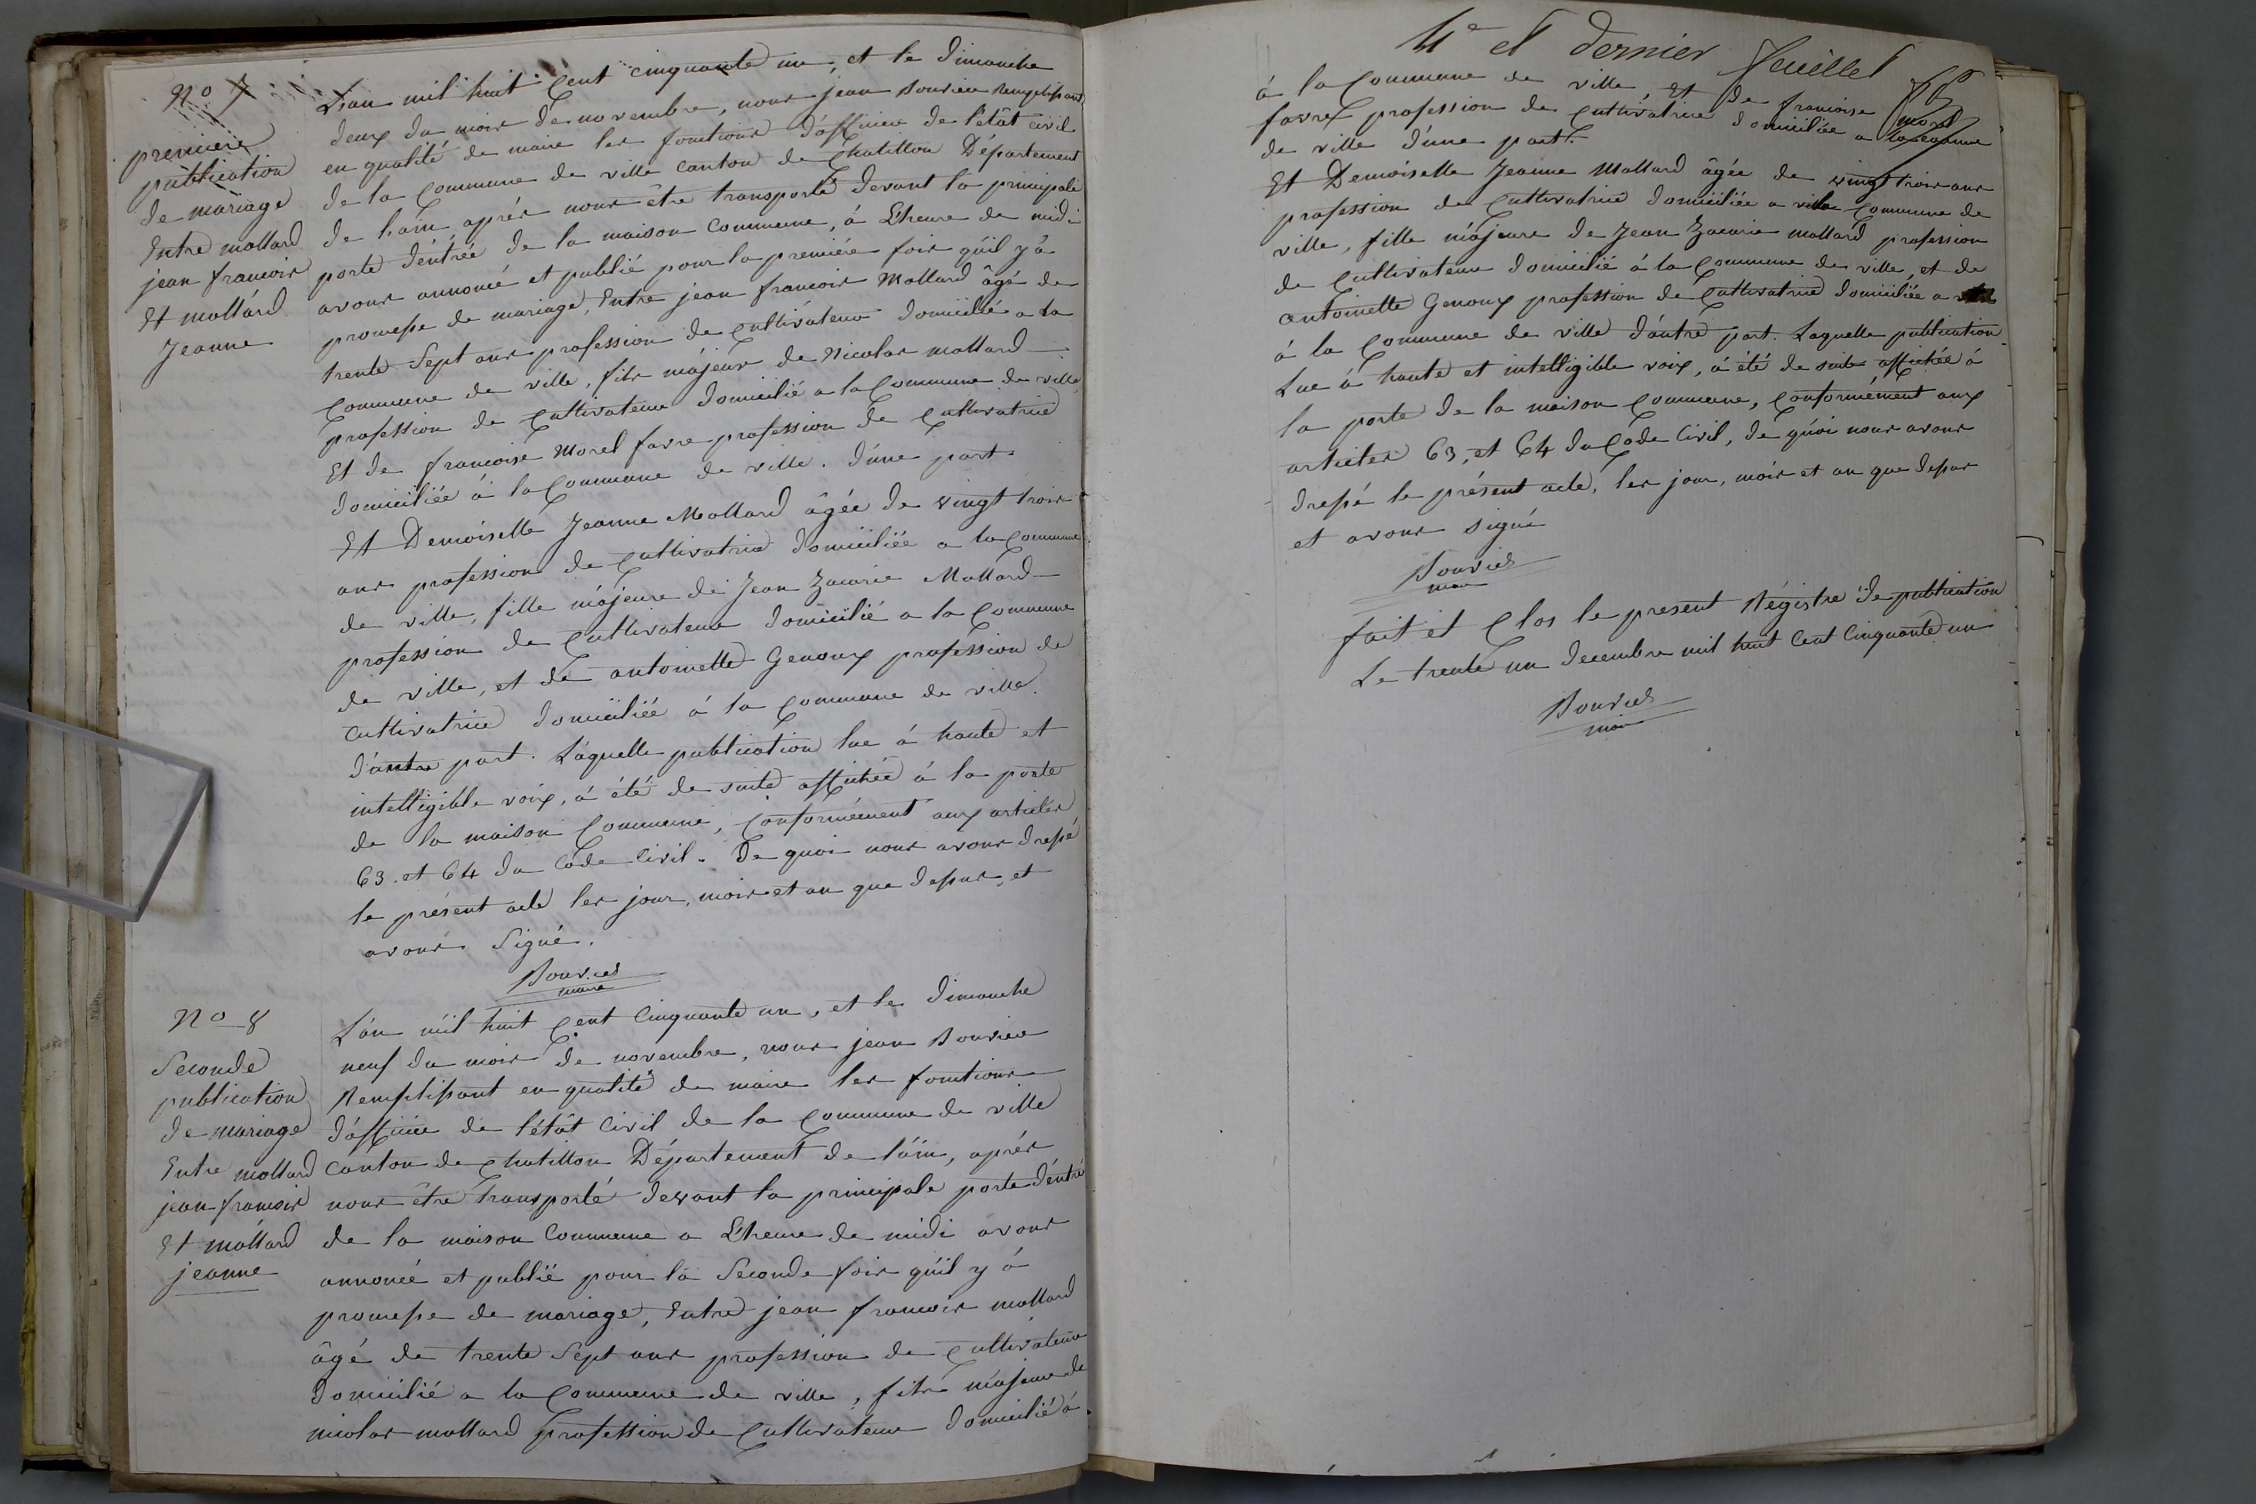 No 7
première
publication
de mariage
Entre mollard
jean francois
Et mollard
Jeanne
L'an mil huit Cent cinquante un, et le dimanche
deux du mois de novembre, nous jean Bouvier Remplissant
en qualité de maire les fonctions d'officier de l'état civil
de la Commune de ville canton de Chatillon Département
de l'ain, après nous être transporté devant la principale
porte d'éntrée de la maison Commune, á L'heure de midi
avons annoncé et publié pour la première fois qu'il y a
promesse de mariage, Entre jean francois Mollard âgé de
trente Sept ans profession de Cultivateur domicilié a la
Commune de ville, fils májeur de Nicolas mollard
profession de Cultivateur domicilié a la Commune de ville
Et de francoise Morel favre profession de Cultivatrice
domiciliée á la Commune de ville. d'une part.
Et Demoiselle Jeanne Mollard âgée de vingt trois
ans profession de Cultivatrice domiciliée a la Commune
de ville, fille májeure de Jean Zacarie Mollard
profession de Cultivateur domicilié a la Commune
de ville, et de antoinette Genoux profession de
cultivatrice domiciliée á la Commune de ville.
d'autre part. Láquelle publication lue á haute et
intelligible voix, á été de suite affichée á la porte
de la maison Commune, Conformément aux articles
63. et 64 du Code Civil. De quoi nous avons dressé
le présent acte les jour, mois et an que dessus, et
avons Signé.
Bouvier
maire
No 8
Seconde
publication
de mariage
Entre mollard
jean francois
Et mollard
jeanne
L'án mil huit Cent Cinquante un, et le dimanche
neuf du mois de novembre, nous jean Bouvier
Remplissant en qualité de maire les fonctions
d'officier de l'état Civil de la Commune de ville
Canton de Chatillon Département de l'áin, aprés
nous être transporté devant la principale porte d'éntré
de la maison Commune a L'heure de midi avons
annoncé et publié pour la Seconde fois qu'il y á
promesse de mariage, Entre jean francois mollard
âgé de trente Sept ans profession de Cultivateur
domicilié a la Commune de ville, fils májeur de
nicolas mollard profession de Cultivateur domicilié á
4e et dernier feuillet
á la Commune de ville, Et de francoise morel
favre profession de Cultivatrice domiciliée a la Commune
de ville d'une part.
Et Demoiselle Jeanne Mollard âgée de vingt trois ans
profession de Cultivatrice domiciliée a ville Commune de
ville, fille májeure de Jean Zacarie mollard profession
de Cultivateur domicilié á la Commune de ville, et de
antoinette Genoux profession de Cultivatrice domiciliée a
á la Commune de ville d'autre part. Laquelle publication
Lue á haute et intelligible voix, á été de suite affichée á
la porte de la maison Commune, Conformément aux
articles 63, et 64 du Code Civil, de quoi nous avons
dressé le présent acte, les jour, mois et an que dessus
et avons signé
Bouvier
maire
fait et Clos le present Régistre de publication
Le trente un decembre mil huit Cent Cinquante un
Bouvier
maire